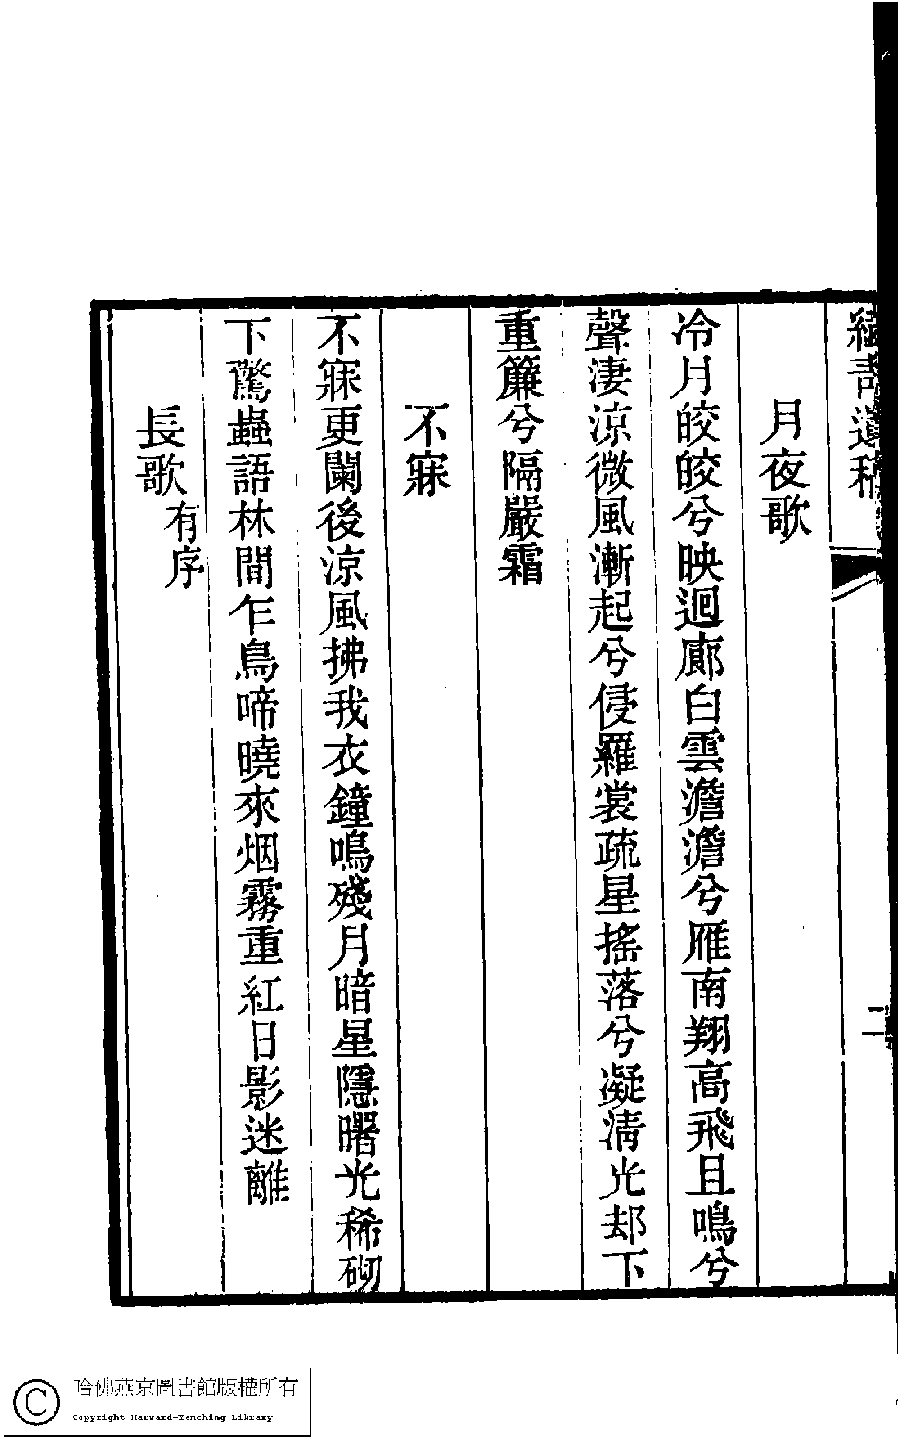 繡靑遺稿
二
月夜歌
冷月皎皎兮映迴廊白雲澹澹兮雁南翔高飛且鳴兮
聲淒涼微風漸起兮侵羅裳疏星搖落兮凝淸光却下
重簾兮隔嚴霜
不寐
不寐更闌後涼風拂我衣鐘鳴殘月暗星隱曙光稀砌
下驚蟲語林間乍鳥啼曉來烟霧重紅日影迷離
長歌有序
哈佛燕京圖書館版權所有
Copyright Harvard-Yenching Library